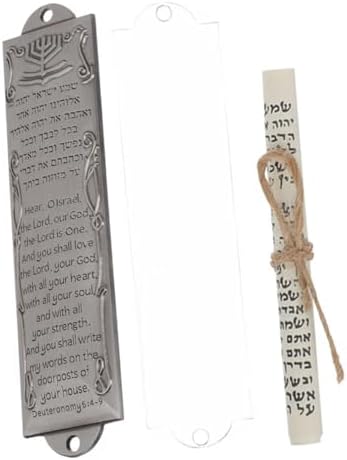 שמע ישראל יהוה
אלוהינו יהוה אחד
ואהבת את יהוה אלהיך
בכל לבבך ובכל
נפשך ובכל מאדך
וכתבתם את דברי
על מזוזה ביתך
Hear, O Israel,
the Lord, our God,
the Lord is One.
And you shall love
the Lord, your God,
with all your heart,
with all your soul,
and with all
your strength.
And you shall write
my words on the
doorposts of
your house.
Deuteronomy 6:4-9
שמע
יהוה
הדבר
אתם
ושמת
אתם
אתם
אשר
על